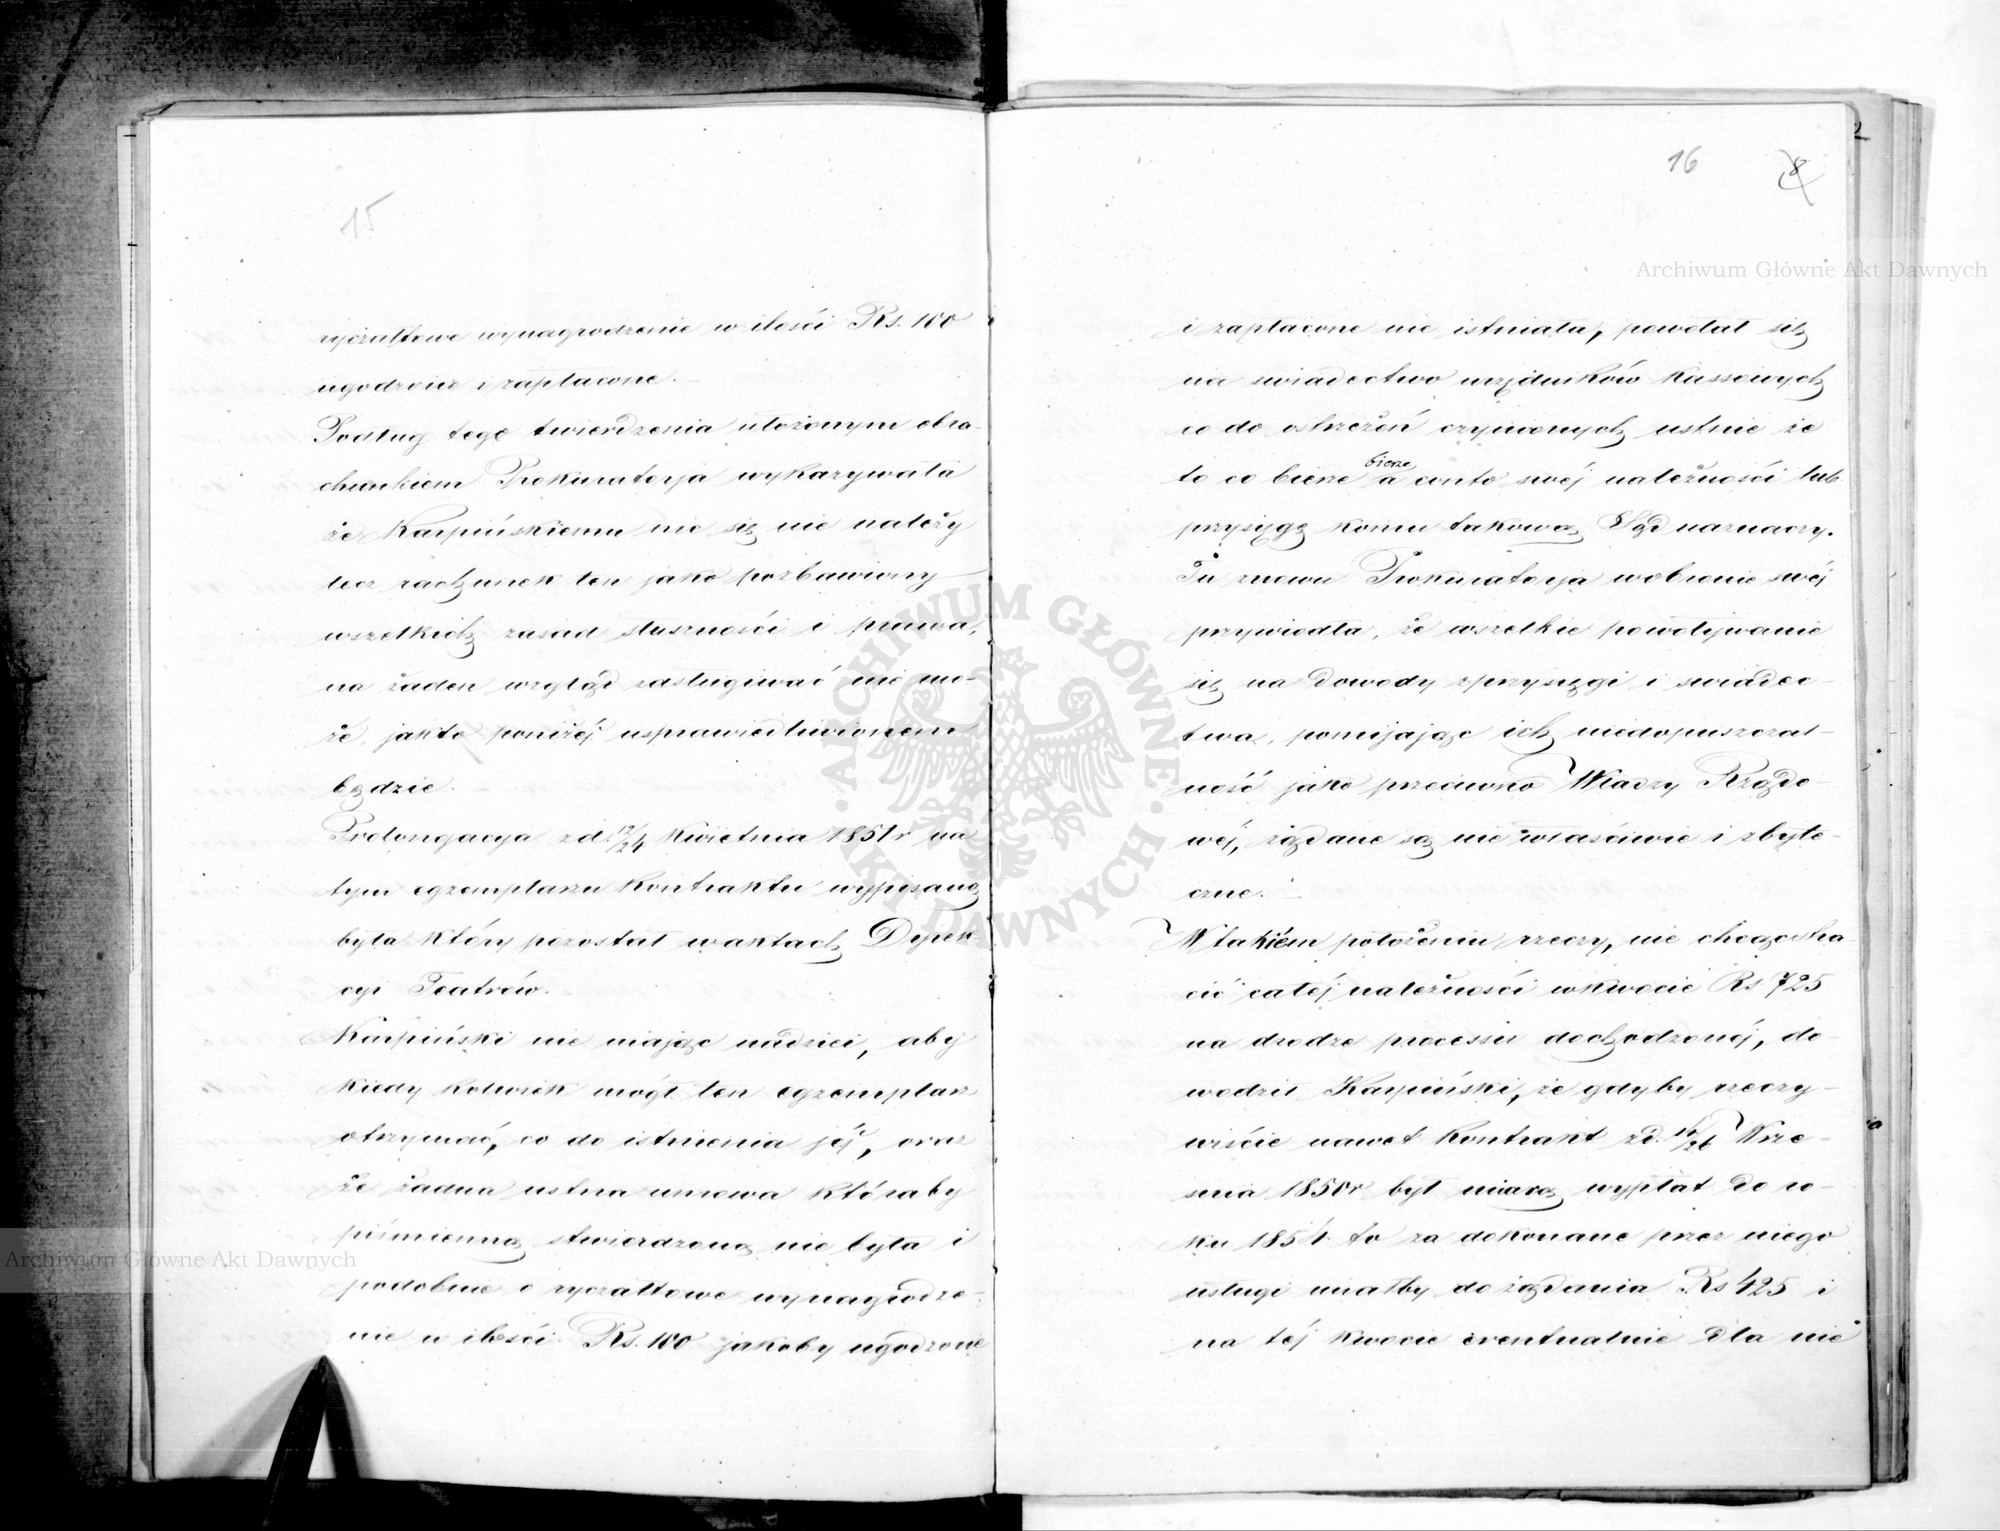 15
ryczałtowe wynagrodzenie w ilości Rs. 100
ugodzone i zapłacone.
Podług tego twierdzenia ułożonym obra-
chunkiem Prokuratorja wykazywała
że Karpińskiemu nic się nie należy
lecz rachunek ten jako pozbawiony
wszelkich zasad słuszności i prawa,
na żaden wzgląd zasługiwać nie mo-
że, jak to poniżéj usprawiedliwionem
będzie.
Prolongacya z d. 12/24 Kwietnia 1851 r na
tym egzemplarzu Kontraktu wypisaną
była który pozostał w aktach Dyrek-
cyi Teatrów.
Karpiński nie mając nadziei, aby
kiedy kolwiek mógł ten egzemplarz
otrzymać, co do istnienia jéj, oraz
że żadna ustna umowa któraby
piśmienną stwierdzoną nie była i
podobnie o ryczałtowe wynagrodze-
nie w ilości Rs. 100 jakoby ugodzone
16
8
i zapłacone nie istniała, powołał się
na świadectwo urzędników Kassowych
co do ostrzeżeń czynionych ustnie że
to co bierze bierze a conto swéj należności lub
przysięgę komu takową Sąd naznaczy.
Tu znowu Prokuratorja w obronie swéj
przywiodła, że wszelkie powoływanie
się na dowody z przysięgi i świadec-
twa, pomijając ich niedopuszczal-
ność jako przeciwko Władzy Rządo-
wéj, żądane są nie właściwie i zbyte-
czne.
W takiém położeniu rzeczy, nie chcąc stra-
cić całéj należności w kwocie Rs 725
na drodze processu dochodzonéj, do-
wodził Karpiński, że gdyby rzeczy-
wiście nawet Kontrakt z d. 14/26 Wrze-
śnia 1850 r był miarą wypłat do ro-
ku 1851 to za dokonane przez niego
usługi miałby do żądania Rs 425 i
na téj kwocie eventualnie dla nie
Archiwum Główne Akt Dawnych
Archiwum Główne Akt Dawnych
ARCHIWUM GŁÓWNE AKT DAWNYCH